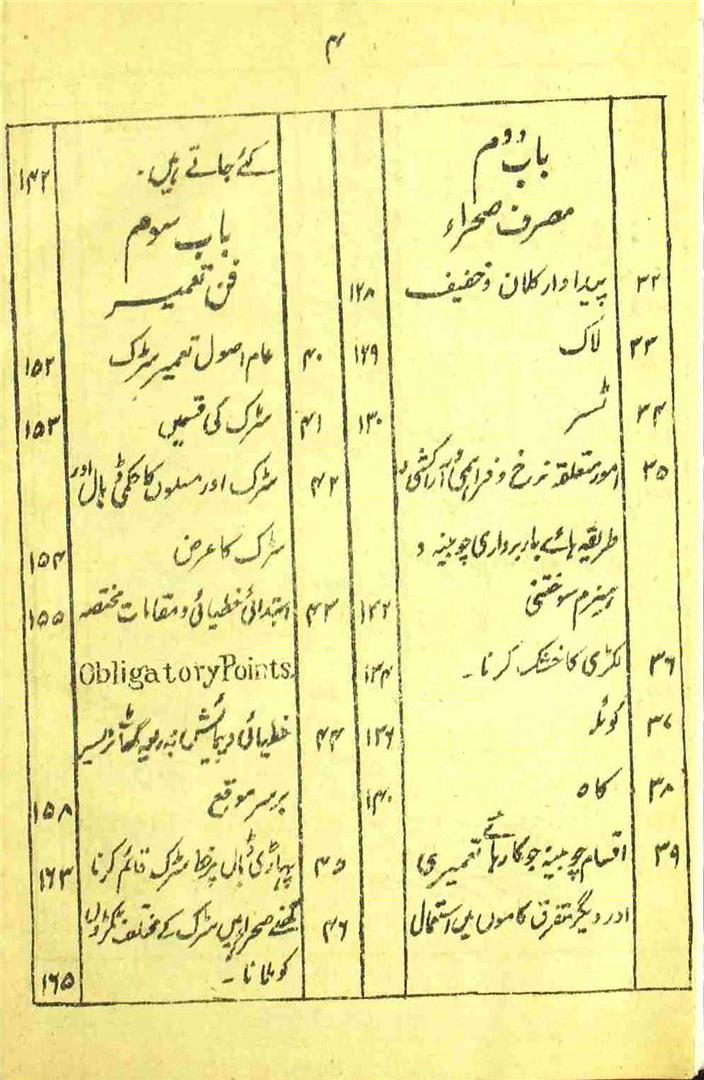 ۴
باب دوم
مصرف صحراء
۳۲ پیداوار کلان و خفیف ۱۲۸
۳۳ لاک ۱۲۹
۳۴ ٹسر ۱۳۰
۳۵ امور متعلقہ نرخ و فراہمی و آراکشی و
طریقہ ہائے باربرداری چوبینہ و
ہیزم سوختنی ۱۳۲
۳۶ لکڑی کا خشک کرنا۔ ۱۳۴
۳۷ کوئلہ ۱۳۶
۳۸ کاہ ۱۴۰
۳۹ اقسام چوبینہ جو کارہائے تعمیری
اور دیگر متفرق کاموں میں استعمال
کئے جاتے ہیں۔ ۱۴۲
باب سوم
فن تعمیر
۴۰ عام اصول تعمیر سڑک ۱۵۲
۴۱ سڑک کی قسمیں ۱۵۳
۴۲ سڑک اور مسلوں کا حکمی ڈہال اور
سڑک کا عرض ۱۵۴
۴۳ ابتدائی خطیائی و مقامات مختصہ ۱۵۵
Obligatory Points.
۴۴ خطیائی و پیمائش بذریعہ گھاٹ ٹریسر
برسر موقع ۱۵۸
۴۵ پہاڑی ڈہال پر خط سڑک قائم کرنا ۱۶۳
۴۶ گھنے صحرا میں سڑک کے مختلف ٹکڑوں
کو ملانا۔ ۱۶۵